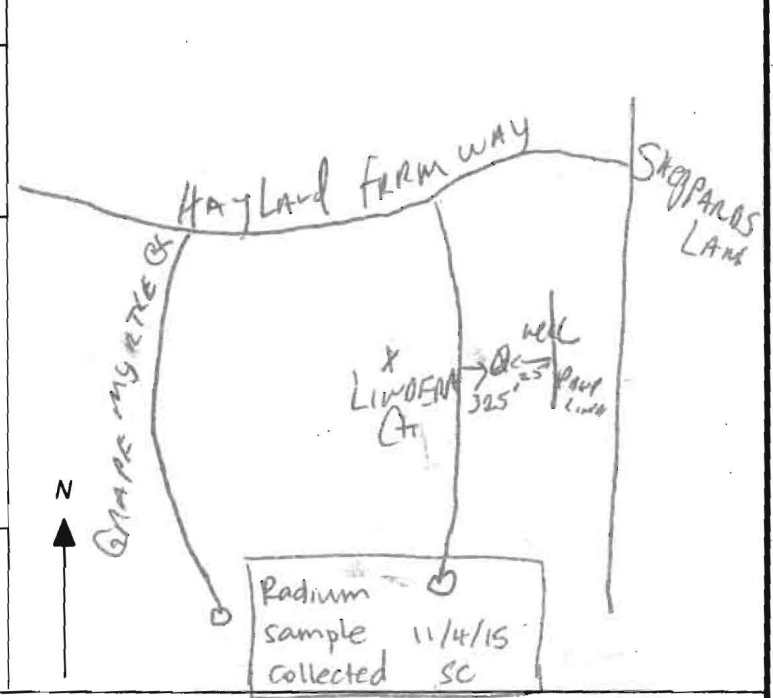 HAYLAND FARM WAY
SHEPPARDS
LANE
GRAPE MYRTLE Ct
X
LINDEN
Ct
325'
25'
well
N
Radium
sample 11/4/15
collected SC